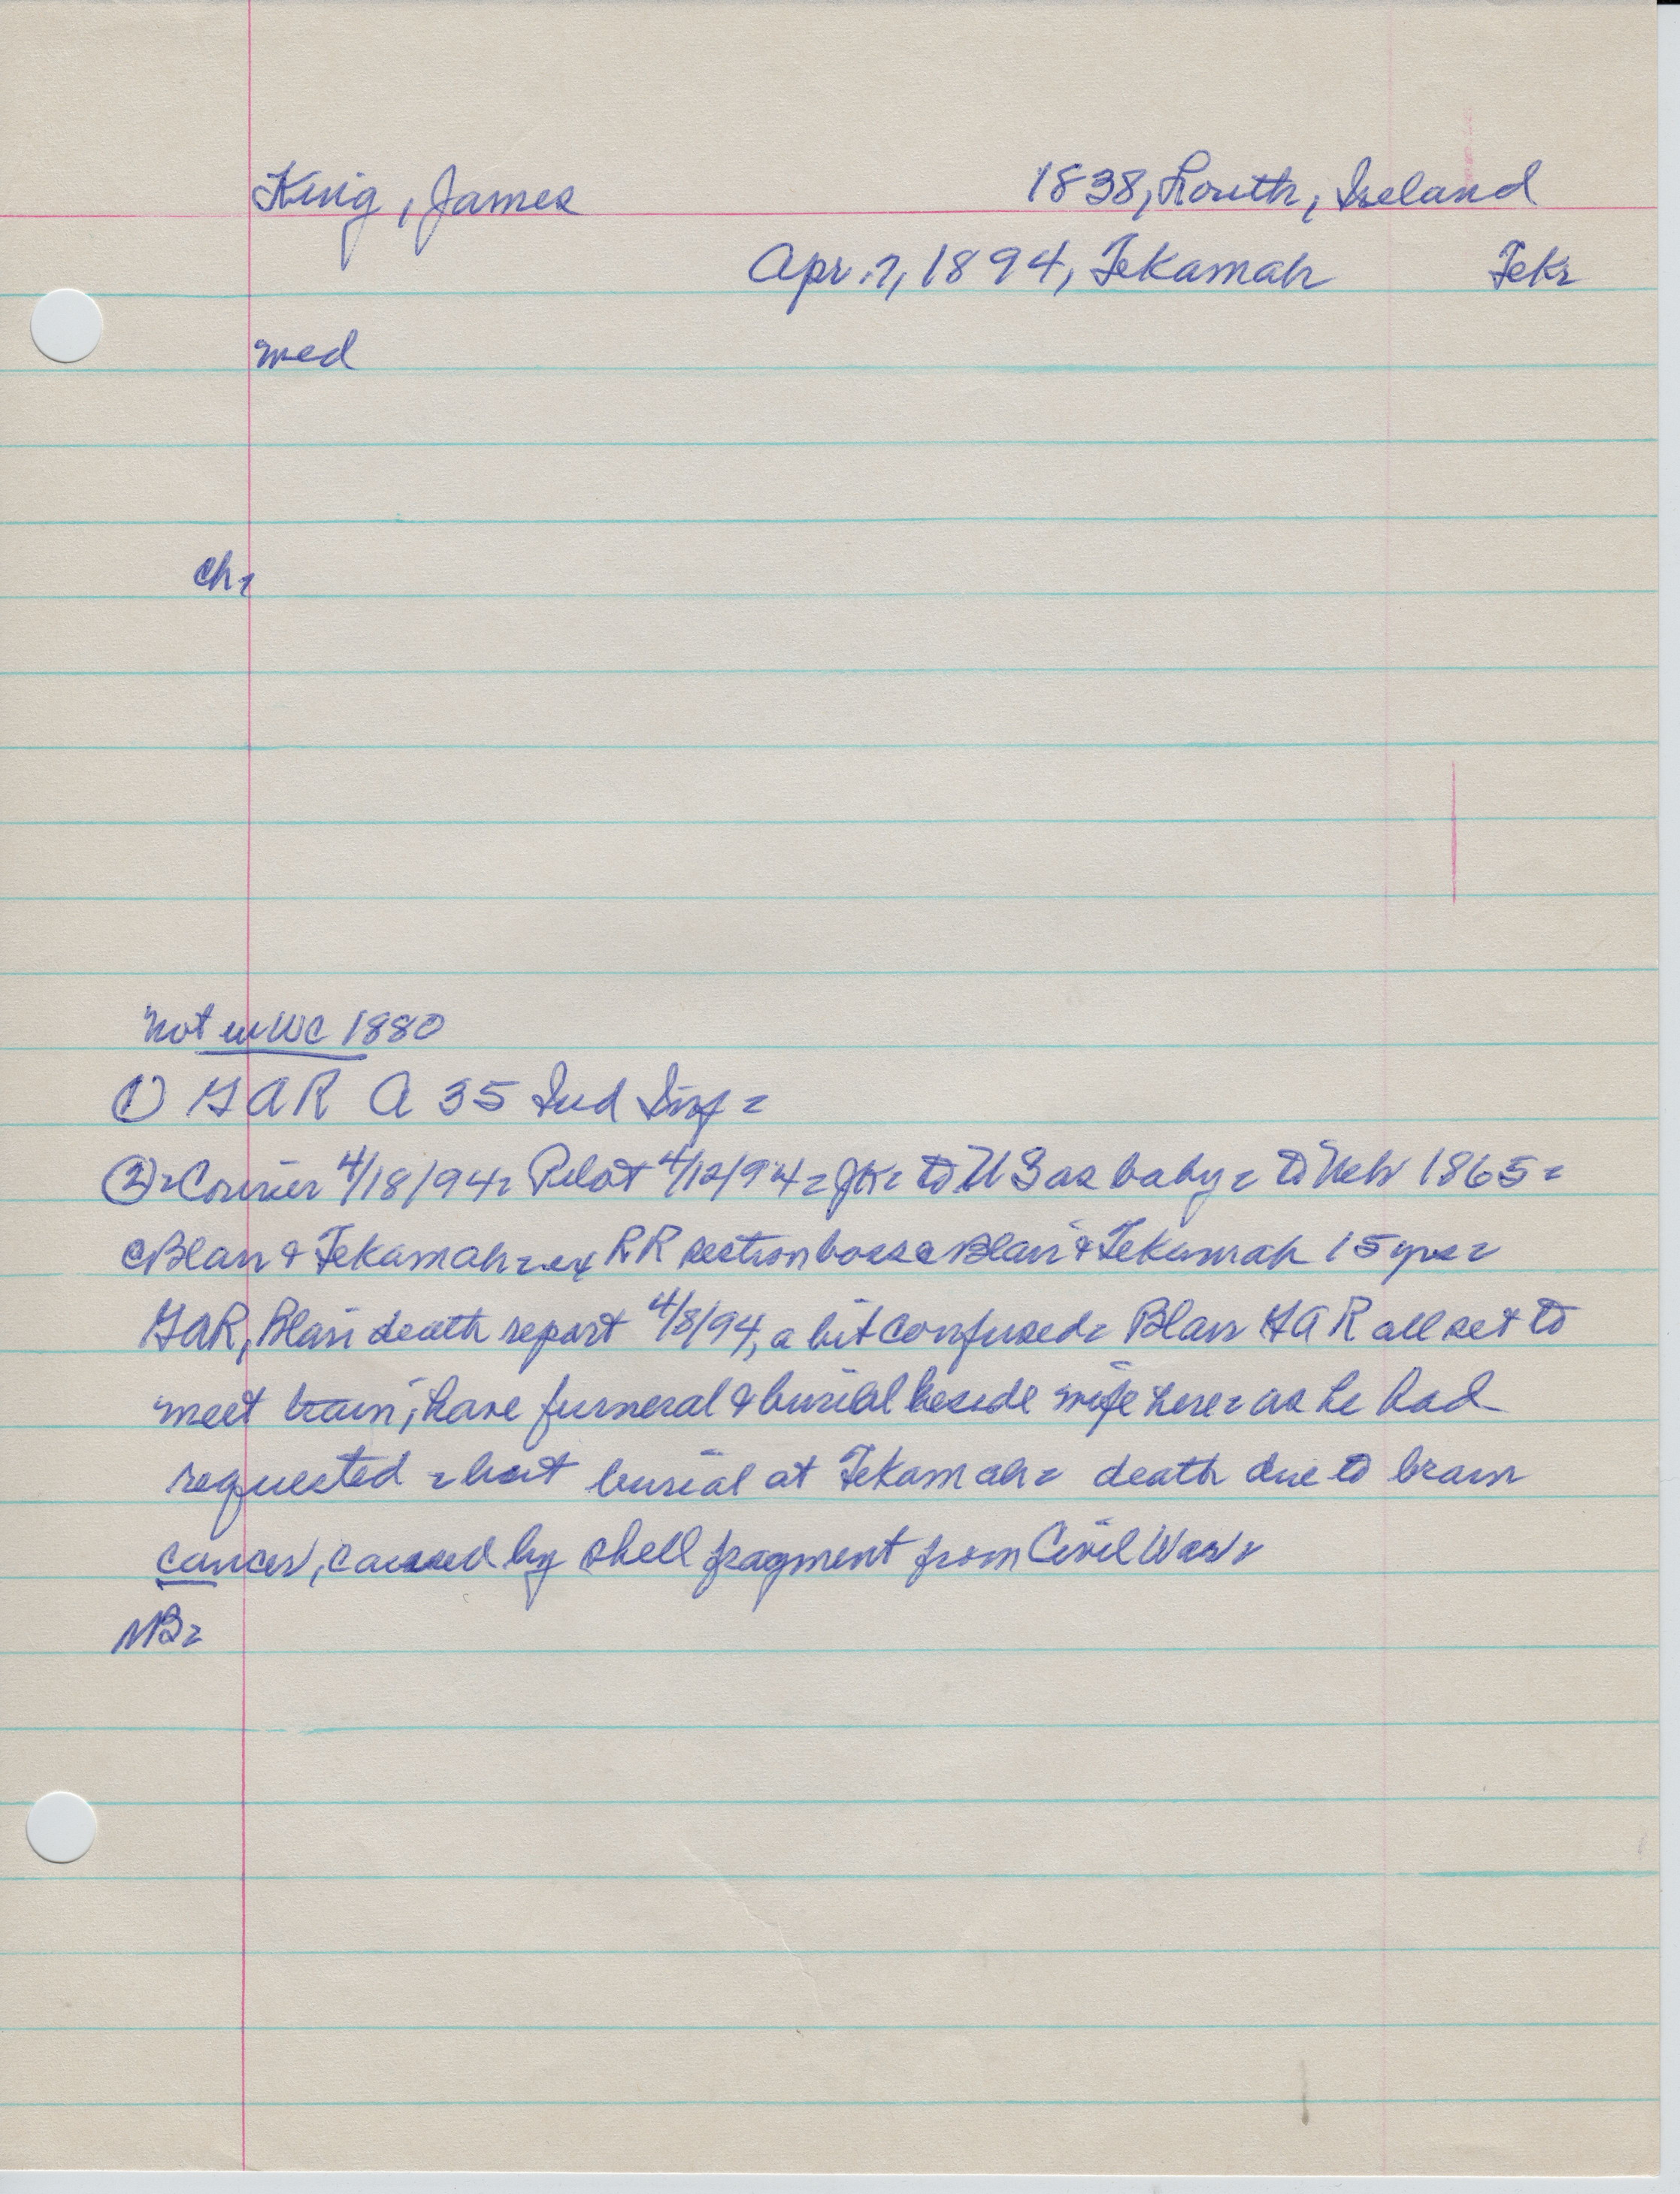 King, James 1838, Louth, Ireland
Apr. 7, 1894, Tekamah Tek-
med
ch-
not in WC 1880
(1) GAR A 35 Ind Inf-
(2)-Courier 4/18/94- Pilot 4/12/94- JK- to US as baby- to Neb 1865-
c Blair & Tekamah- ex RR section boss c Blair & Tekamah 15 yrs-
GAR, Blair death report 4/8/94, a bit confused- Blair GAR all set to
meet train, have funeral & burial beside wife here- as he had
requested - but burial at Tekamah- death due to brain
cancer, caused by shell fragment from Civil War-
NB-